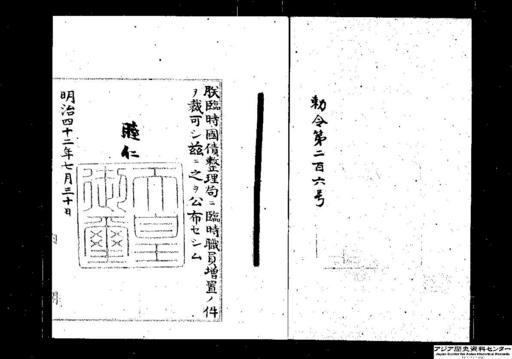 勅令第二百六号
朕臨時國債整理局ニ臨時職員増置ノ件
ヲ裁可シ茲ニ之ヲ公布セシム
睦仁
天皇
御璽
明治四十二年七月三十日
アジア歴史資料センター
Japan Center for Asian Historical Records